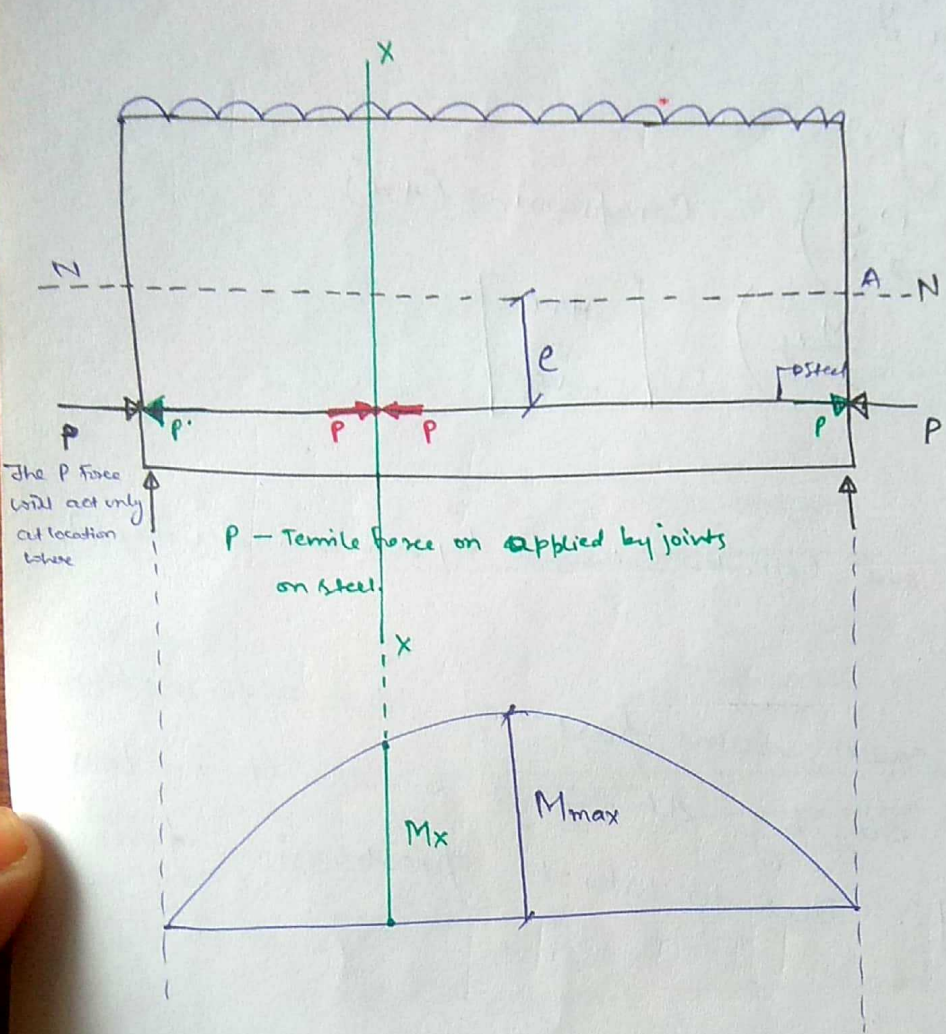 X
N
A
N
e
Steel
P
P
P
P
P
P
The P Force
will act only
at location
where
P - Tensile force on applied by joints
on steel.
X
Mmax
Mx